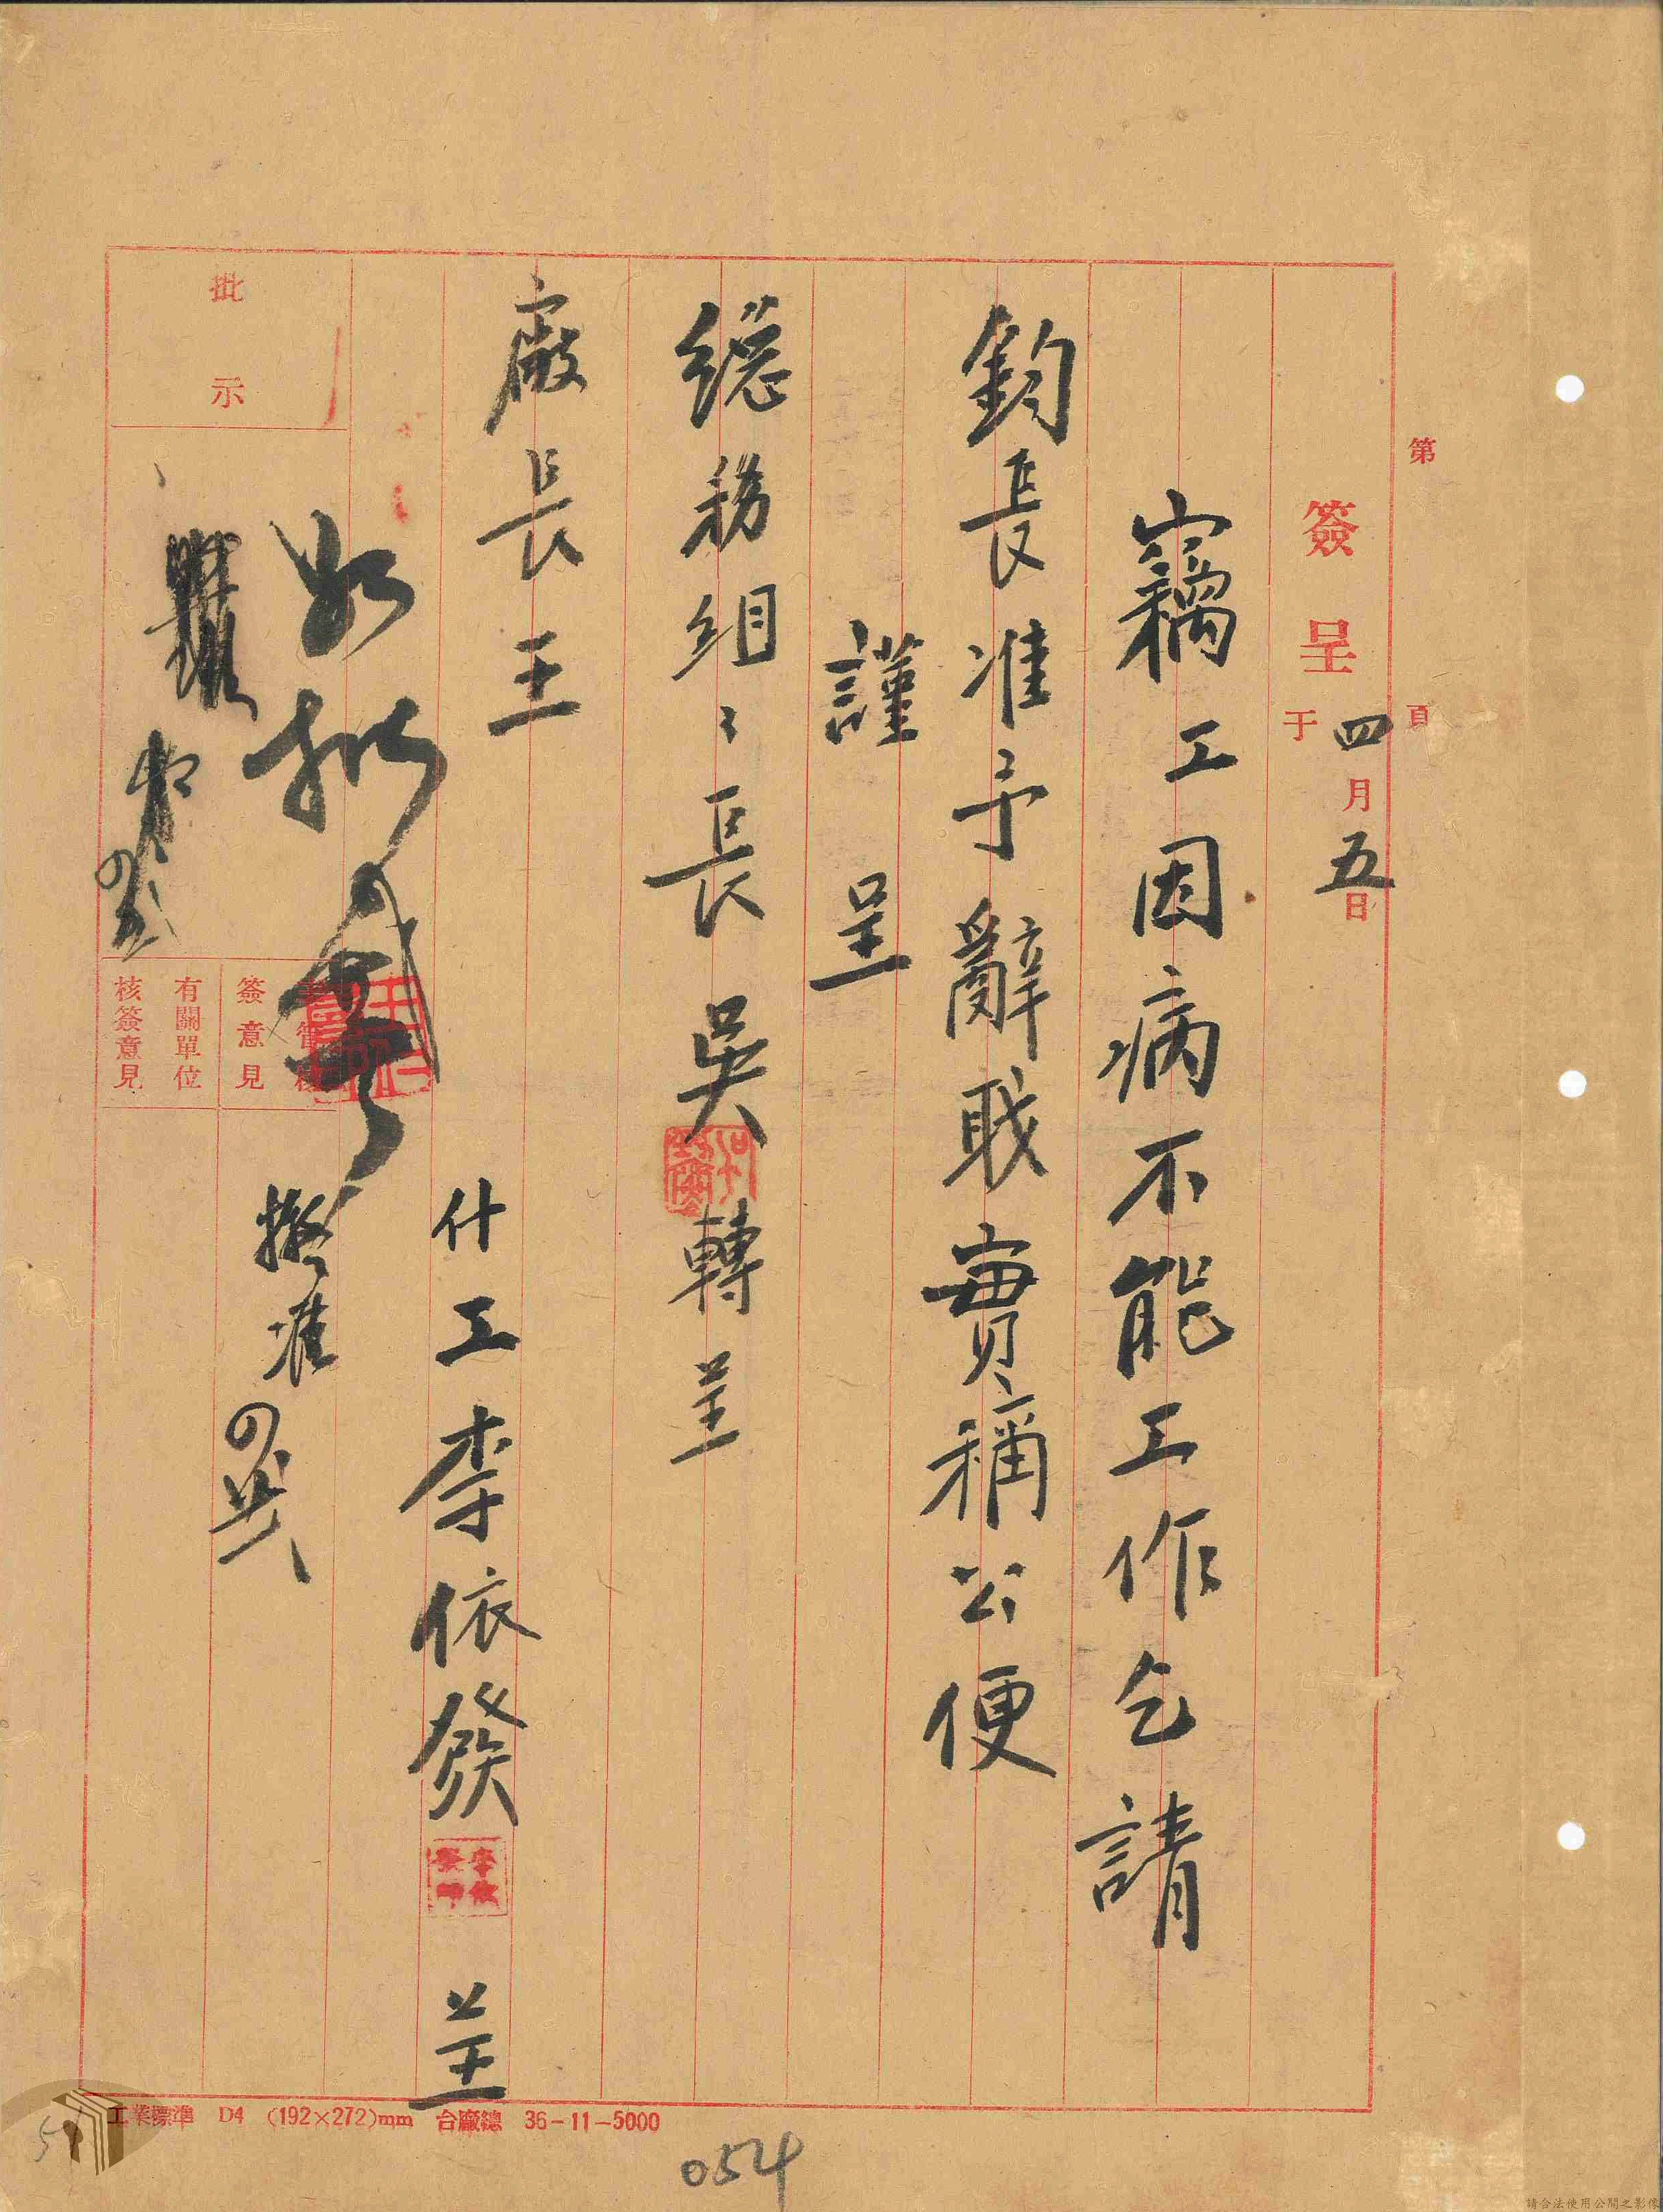 第 頁
簽呈 于四月五日
竊工因病不能工作乞請
鈞長准予辭职實稱公便
謹呈
總務組、長吳 轉呈
廠長王
什工李依發 呈
批示
如拟
擬准
簽意見
有關單位
核簽意見
工業標準 D4 (192×272)mm 台廠總 36-11-5000
054
請合法使用公開之影像